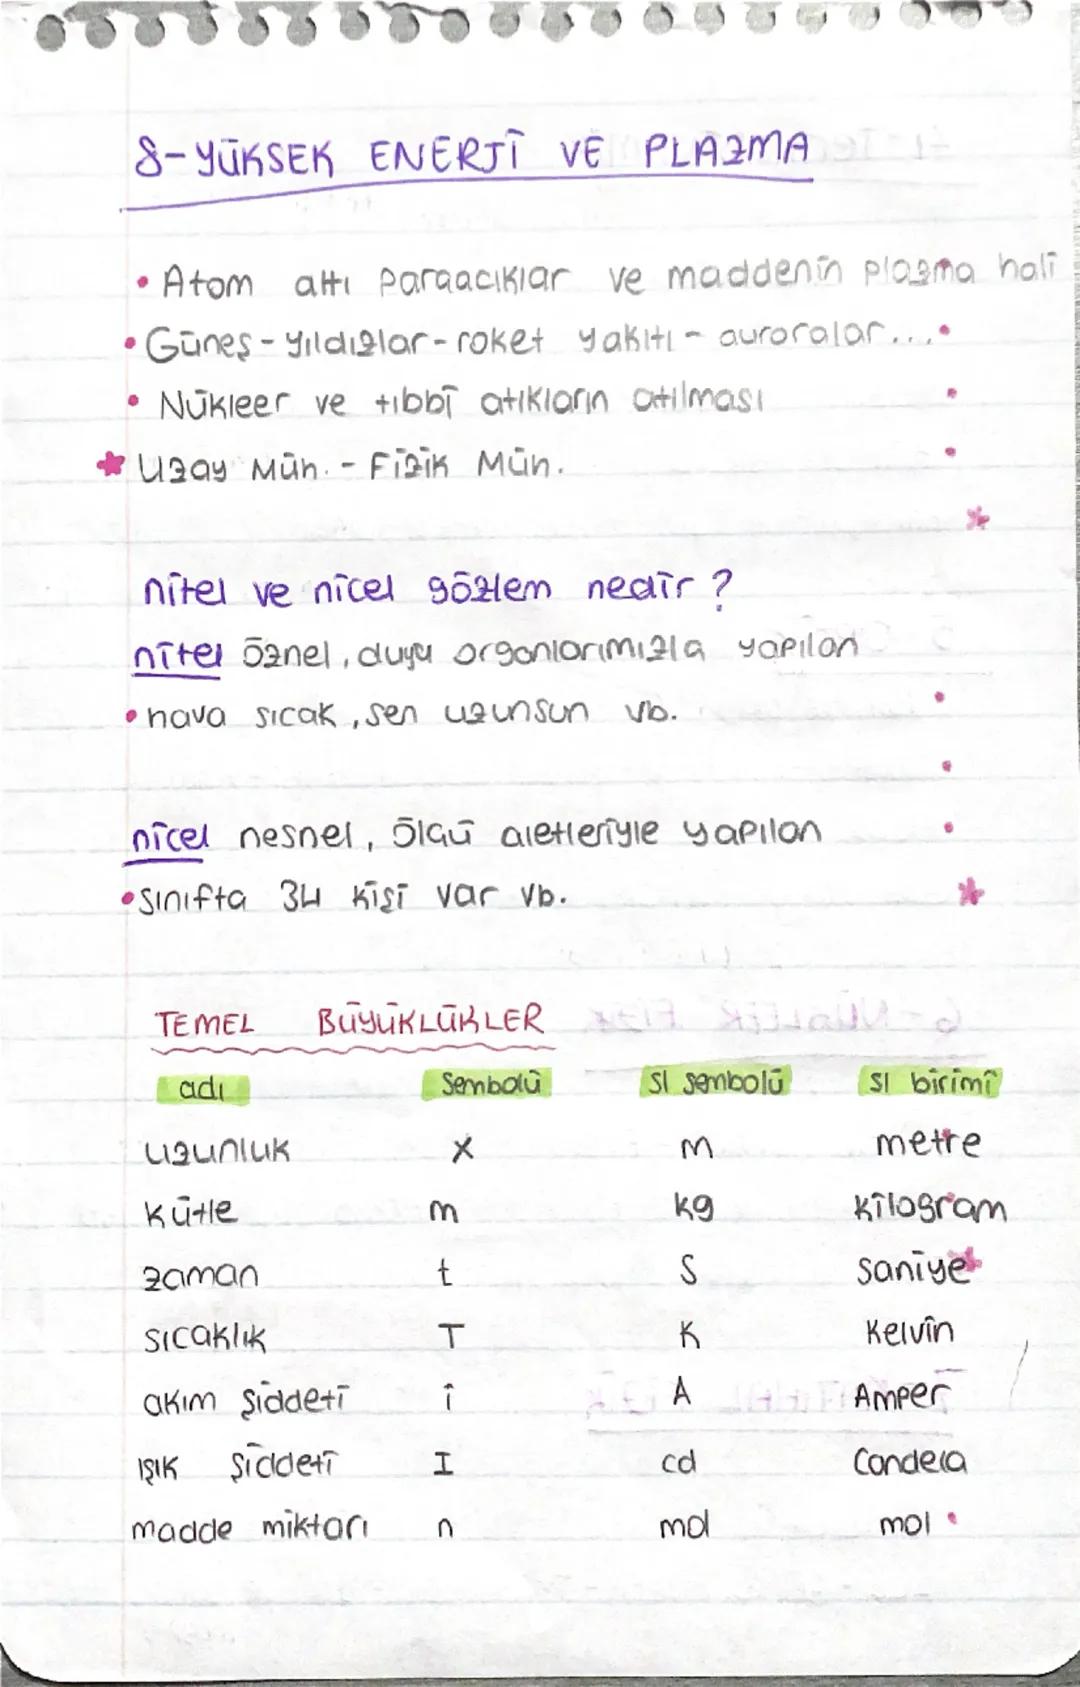 8-YÜKSEK ENERJİ VE PLAZMA
• Atom altı paraacıklar ve maddenin plazma hali
• Güneş - yıldızlar - roket yakıtı - auroralar....
• Nükleer ve tıbbi atıkların atılması
* Uzay Müh. - Fizik Müh.
nitel ve nicel gözlem nedir ?
nitel öznel, duyu organlarımızla yapılan
• hava sıcak, sen uzunsun vb.
nicel nesnel, ölçü aletleriyle yapılan
• Sınıfta 34 kişi var vb.
TEMEL BÜYÜKLÜKLER
adı Sembolü SI sembolü SI birimi
uzunluk x m metre
kütle m kg kilogram
zaman t s saniye
sıcaklık T K Kelvin
akım şiddeti i A Amper
ışık şiddeti I cd Candela
madde miktarı n mol mol